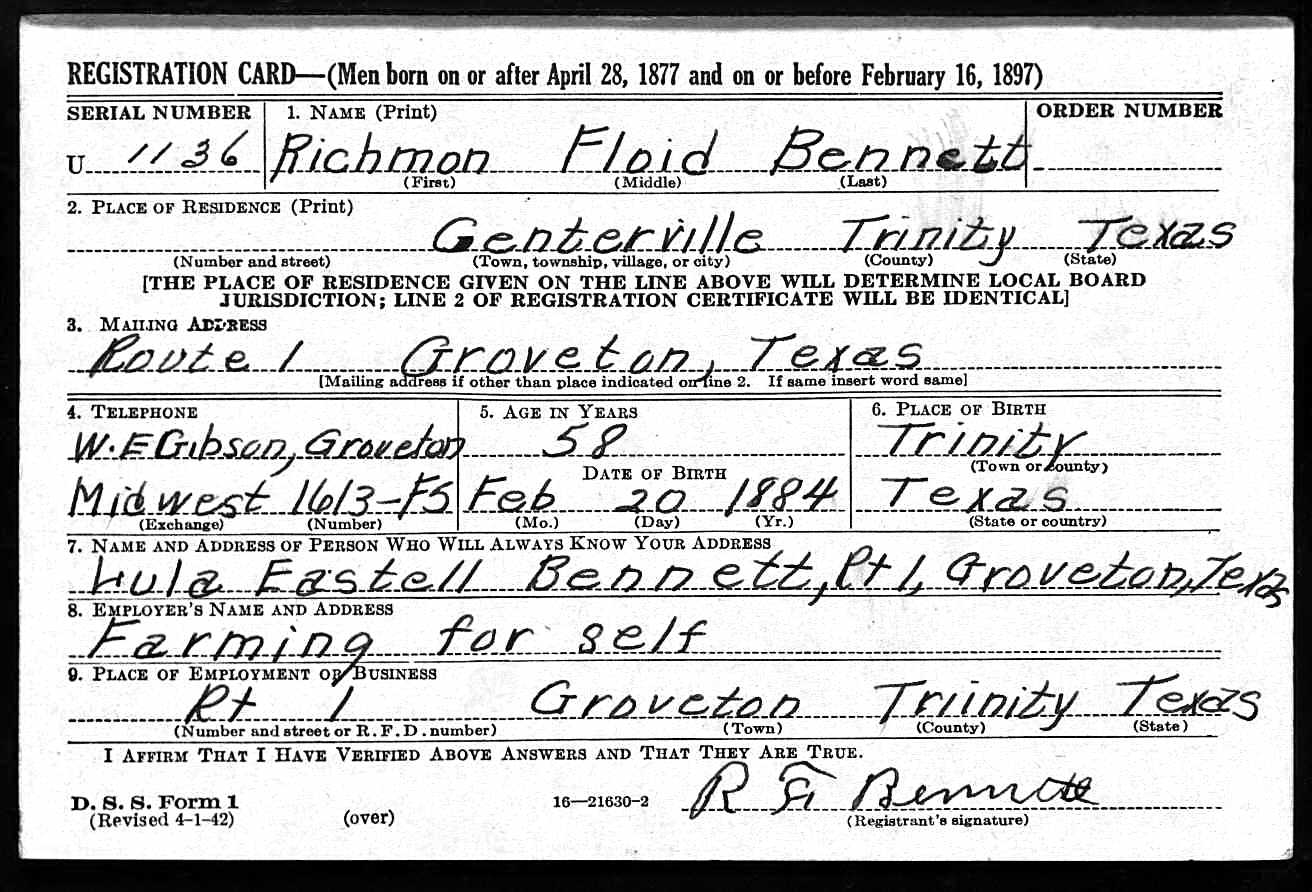 REGISTRATION CARD—(Men born on or after April 28, 1877 and on or before February 16, 1897)
SERIAL NUMBER 1. NAME (Print) ORDER NUMBER
U 1136 Richmon Floid Bennett
(First) (Middle) (Last)
2. PLACE OF RESIDENCE (Print)
Centerville Trinity Texas
(Number and street) (Town, township, village, or city) (County) (State)
[THE PLACE OF RESIDENCE GIVEN ON THE LINE ABOVE WILL DETERMINE LOCAL BOARD
JURISDICTION; LINE 2 OF REGISTRATION CERTIFICATE WILL BE IDENTICAL]
3. MAILING ADDRESS
Route 1 Groveton, Texas
[Mailing address if other than place indicated on line 2. If same insert word same]
4. TELEPHONE 5. AGE IN YEARS 6. PLACE OF BIRTH
W.E Gibson, Groveton 58 Trinity
DATE OF BIRTH (Town or county)
Midwest 1613-F5 Feb 20 1884 Texas
(Exchange) (Number) (Mo.) (Day) (Yr.) (State or country)
7. NAME AND ADDRESS OF PERSON WHO WILL ALWAYS KNOW YOUR ADDRESS
Lula Eastell Bennett, Rt 1, Groveton, Texas
8. EMPLOYER'S NAME AND ADDRESS
Farming for self
9. PLACE OF EMPLOYMENT OR BUSINESS
Rt 1 Groveton Triinity Texas
(Number and street or R. F. D. number) (Town) (County) (State)
I AFFIRM THAT I HAVE VERIFIED ABOVE ANSWERS AND THAT THEY ARE TRUE.
R F Bennett
D. S. S. Form 1 16—21630-2
(Revised 4-1-42) (over) (Registrant's signature)